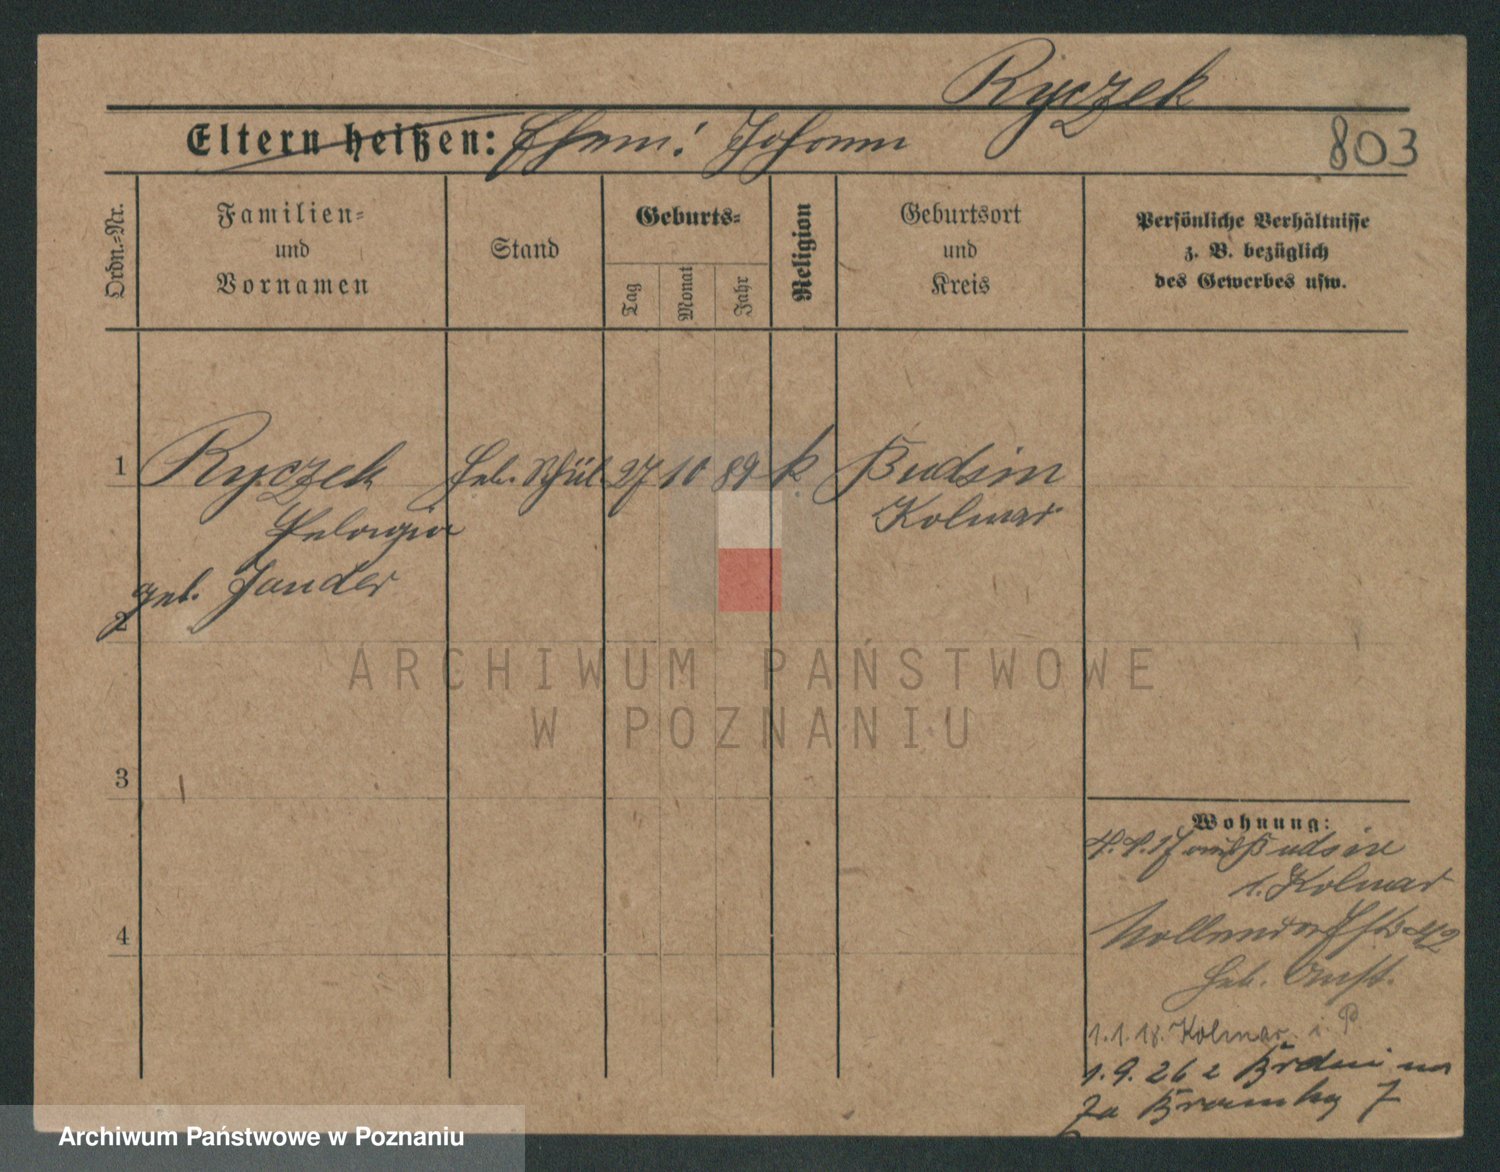 Ryczek
Eltern heißen: Ehem: Johann
803
Ordn.=Nr.
Familien=
und
Vornamen
Stand
Geburts=
Tag
Monat
Jahr
Religion
Geburtsort
und
Kreis
Persönliche Verhältnisse
z. B. bezüglich
des Gewerbes usw.
1 Ryczek Heb. Schül. 27 10 89 k Budsin
Pelagia Kolmar
geb. Jander
2
ARCHIWUM PAŃSTWOWE
W POZNANIU
3
4
Wohnung:
4.4.17 aus Budsin
Kolmar
Nollendorfstr 42
Heb. Anst.
1.1.18. Kolmar i. P
1.9.26 z
7
Archiwum Państwowe w Poznaniu